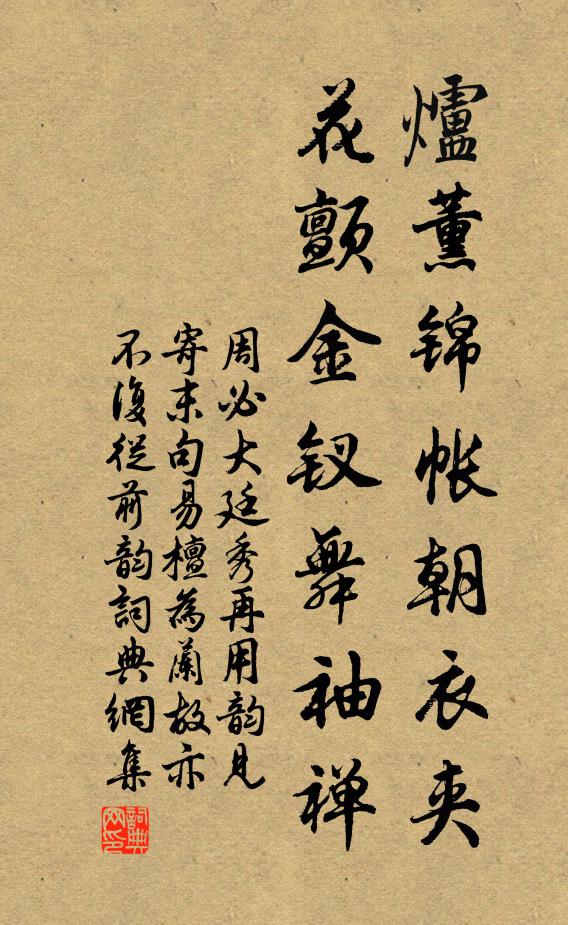 爐薰锦帐朝衣夹
花颤金钗舞袖禅
周必大廷秀再用韵见
寄末句易檀為蘭故亦
不復從前韵詞典網集